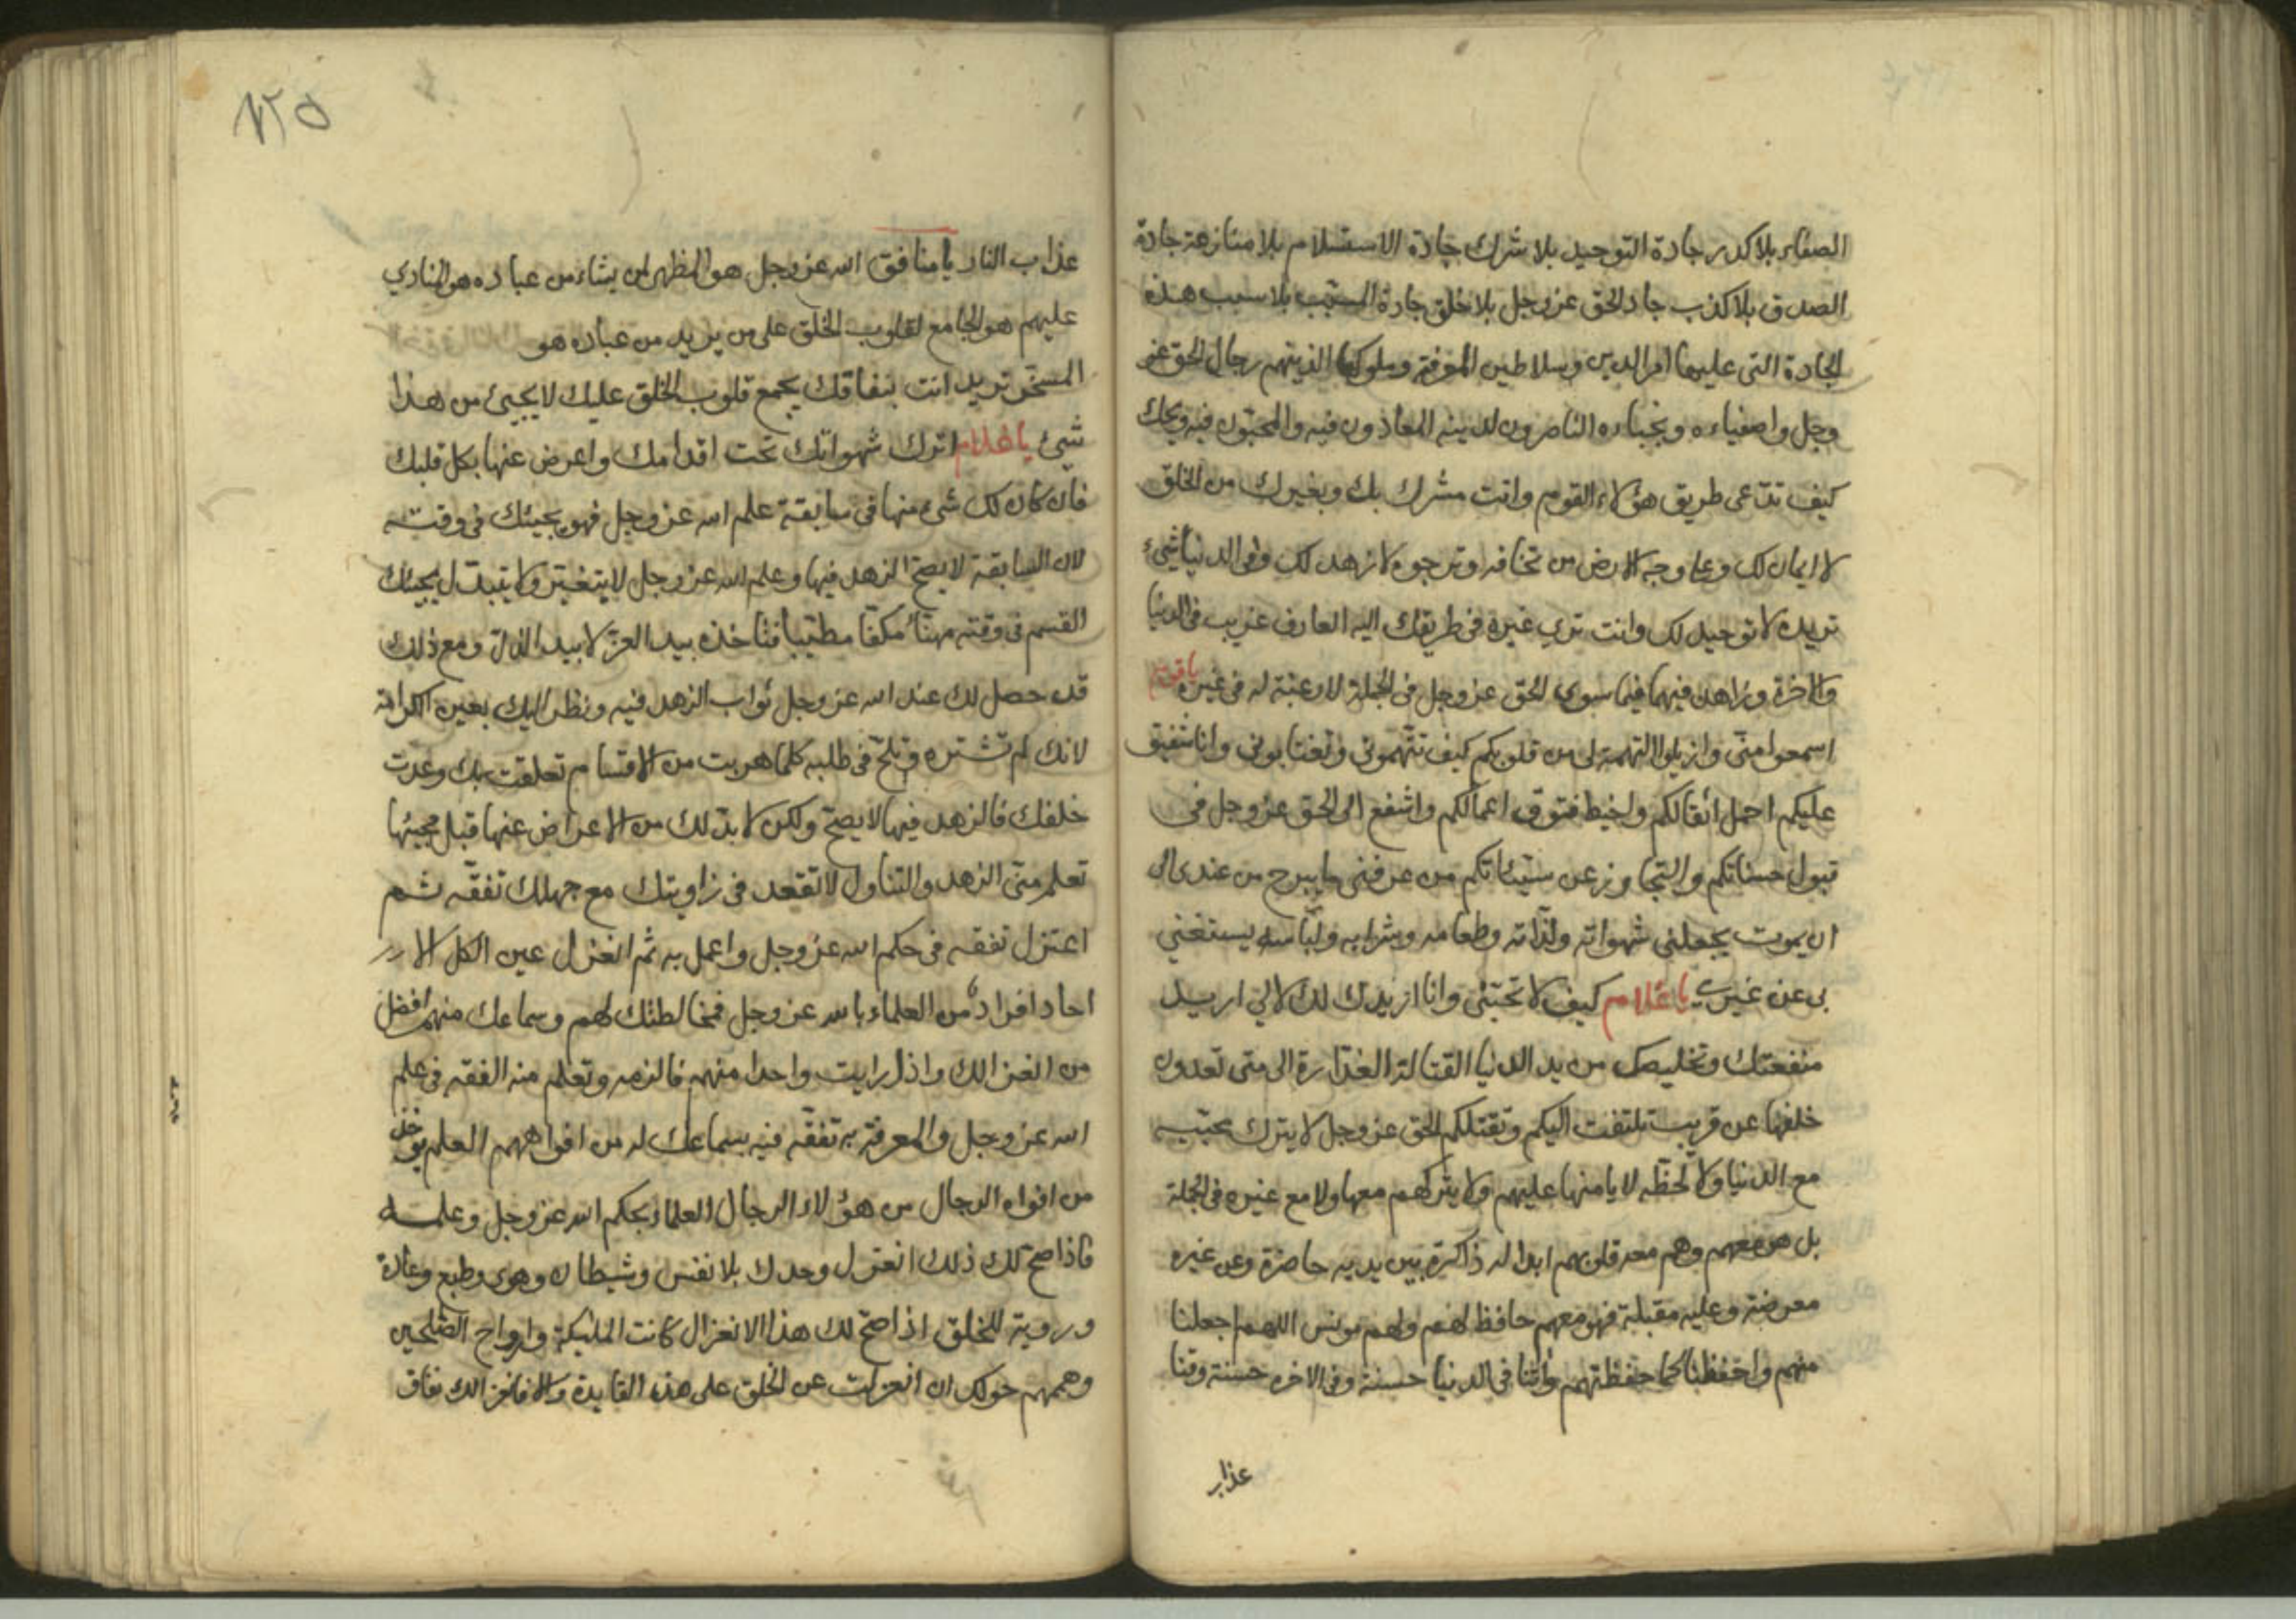 الصفاء بلا كدر جادة التوحيد بلا شرك جادة الاستسلام بلا منازعة جادة
الصدق بلا كذب جادة الحق عز وجل بلا خلق جادة المسبب بلا سبب هذه
الجادة التى عليها امر الدين وسلاطين المعرفة وملوكها الذينهم رجال الحق عز
وجل واصفياءه ونجباءه الناصرون لدينه المعادون فيه والمحبّون فيه ويحك
كيف تدّعى طريق هؤلاء القوم وانت مشرك بك وبغيرك من الخلق
لا ايمان لك وعلى وجه الارض من تخافه وترجوه لا زهد لك وفى الدنيا شىء
تريده لا توحيد لك وانت ترى غيره فى طريقك اليه العارف غريب فى الدنيا
والاخرة وزاهد فيهما فيما سوى الحق عز وجل فى الجملة لا رغبة له فى غيره يا قوم
اسمعوا منّى وازيلوا التهمة لى من قلوبكم كيف تتّهمونى وتغتابونى وانا شفيق
عليكم احمل اثقالكم واخيط فتوق اعمالكم واشفع الى الحق عز وجل فى
قبول حسناتكم والتجاوز عن سيّئاتكم من عرفنى ما يبرح من عندى الى
ان يموت يجعلنى شهواته ولذّاته وطعامه وشرابه ولباسه يستغني
بى عن غيرى يا غلام كيف لا تحبّنى وانا اريدك لك لا لي اريد
منفعتك وتخليصك من يد الدنيا القتالة الغدّارة الى متى تعدون
خلفها عن قريب تلتفت اليكم وتقتلكم الحق عز وجل لا يترك محبّيه
مع الدنيا ولا لحظة لا يامنها عليهم ولا يتركهم معها ولا مع غيره فى الجملة
بل هو معهم وهم معه قلوبهم ابدا له ذاكرة بين يديه حاضرة وعن غيره
معرضة وعليه مقبلة فهو معهم حافظ لهم ولهم مونس اللهم اجعلنا
منهم واحفظنا كما حفظتهم وأتنا فى الدنيا حسنة وفى الاخره حسنة وقنا
عذاب
١٢٥
عذاب النار يا منافق الله عز وجل هو المظهر لمن يشاء من عباده هو المنادي
عليهم هو الجامع لقلوب الخلق على من يريد من عباده هو
المسخّر تريد انت بنفاقك يجمع قلوب الخلق عليك لا يجيئ من هذا
شيئ يا غلام اترك شهواتك تحت اقدامك واعرض عنها بكل قلبك
فان كان لك شىء منها فى سابقة علم الله عز وجل فهو يجيئك فى وقته
لان السابقة لا يصحّ الزهد فيها وعلم الله عز وجل لا يتغيّر ولا يتبدّل يجيئك
القسم فى وقته مهنّأ مكفّا مطيّبا فتاخذه بيد العزّ لا بيد الذلّ ومع ذلك
قد حصل لك عند الله عز وجل ثواب الزهد فيه ونظر اليك بعين الكرامة
لانك لم تشتره وتلحّ فى طلبه كلما هربت من الاقسام تعلقت بك وعدت
خلفك فالزهد فيها لا يصحّ ولكن لا بدّ لك من الاعراض عنها قبل مجيئها
تعلم منّى الزهد والتناول لا تقعد فى زاويتك مع جهلك تفقّه ثم
اعتزل تفقه فى حكم الله عز وجل واعمل به ثم انعزل عن الكل الا
احاد افراد من العلماء بالله عز وجل فمخالطتك لهم وسماعك منهم افضل
من انعزالك واذا رايت واحدا منهم فالزمه وتعلم منه الفقه فى علم
الله عز وجل والمعرفة به تفقّه فيه بسماعك له من افواههم العلم يوخذ
من افواه الرجال من هؤلاء الرجال العلماء بحكم الله عز وجل وعلمه
فاذا صحّ لك ذلك انعزل وحدك بلا نفس وشيطان وهوى وطبع وعادة
وروية للخلق اذا صحّ لك هذا الانعزال كانت المليكة وارواح الصّلحين
وهممهم حولك ان انعزلت عن الخلق على هذه القايدة والا فانعزالك نفاق